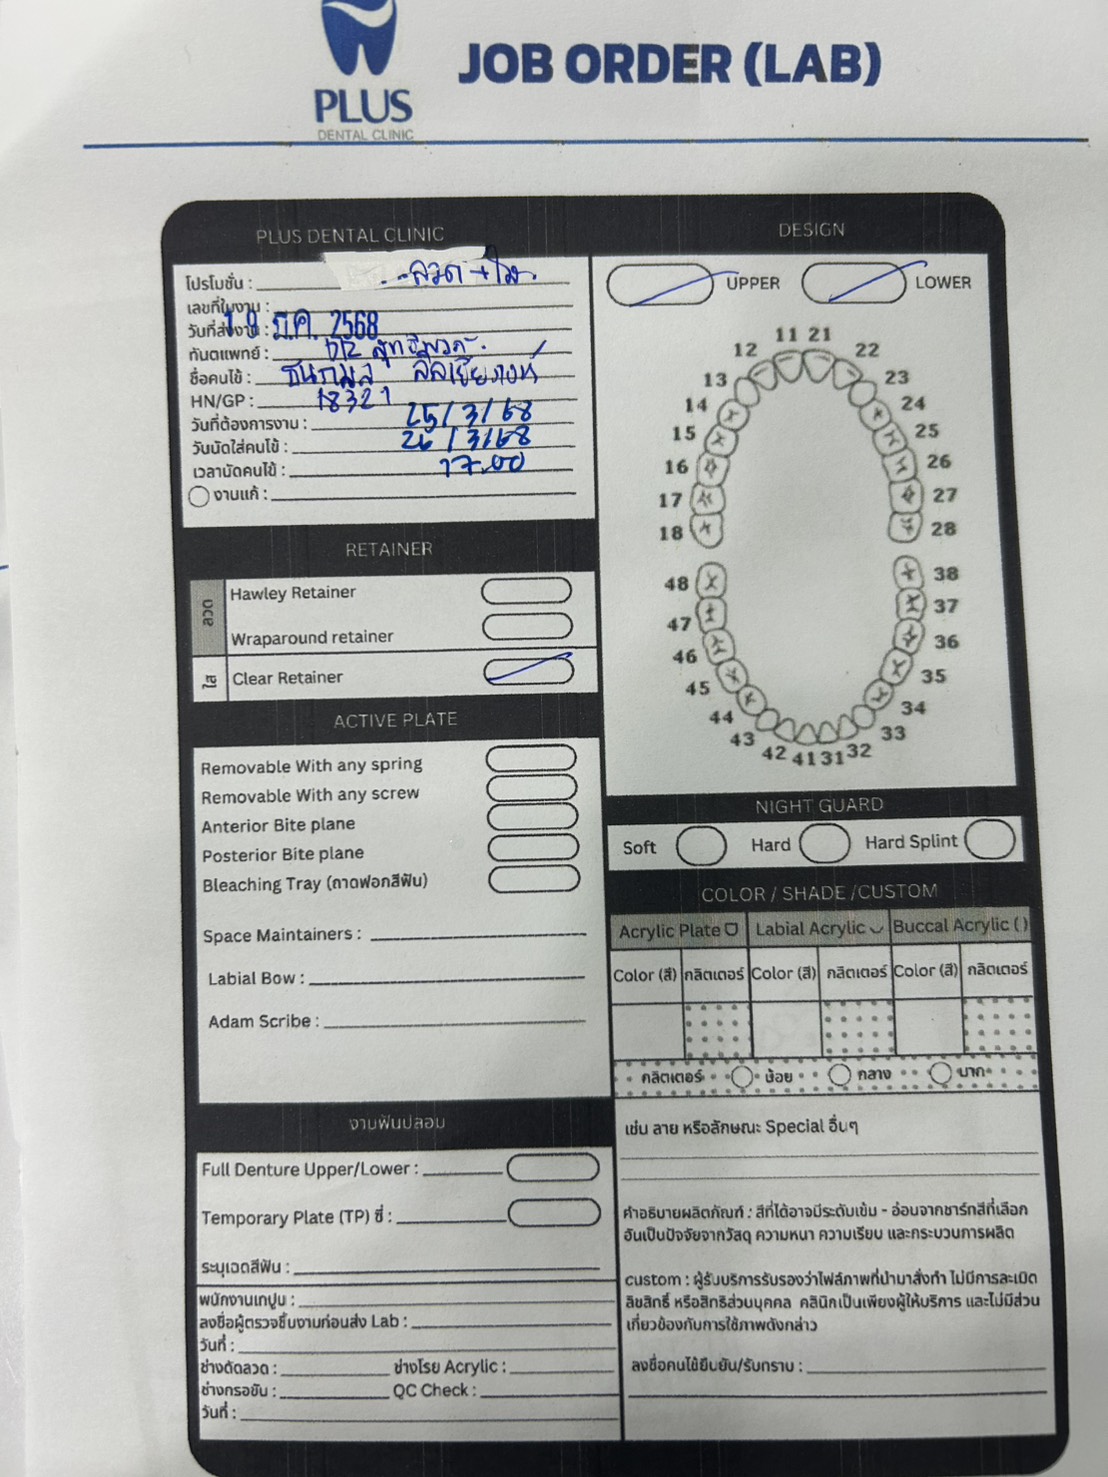 PLUS
DENTAL CLINIC
JOB ORDER (LAB)
PLUS DENTAL CLINIC
โปรโมชั่น : ลวด + ใส
เลขที่ใบงาน :
วันที่ส่งงาน : 19 มี.ค. 2568
ทันตแพทย์ :
ชื่อคนไข้ : ธนกมล
HN/GP : 18321
วันที่ต้องการงาน : 25/3/68
วันนัดใส่คนไข้ : 26/3/68
เวลานัดคนไข้ : 17.00
งานแก้ :
RETAINER
ลวด
Hawley Retainer
Wraparound retainer
ใส
Clear Retainer
ACTIVE PLATE
Removable With any spring
Removable With any screw
Anterior Bite plane
Posterior Bite plane
Bleaching Tray (ถาดฟอกสีฟัน)
Space Maintainers :
Labial Bow :
Adam Scribe :
งานฟันปลอม
Full Denture Upper/Lower :
Temporary Plate (TP) ซี่ :
ระบุเฉดสีฟัน :
พนักงานเทปูน :
ลงชื่อผู้ตรวจชิ้นงานก่อนส่ง Lab :
วันที่ :
ช่างดัดลวด : ช่างโรย Acrylic :
ช่างกรอขัน : QC Check :
วันที่ :
DESIGN
UPPER LOWER
11 21
12 22
13 23
14 24
15 25
16 26
17 27
18 28
48 38
47 37
46 36
45 35
44 34
43 33
42 41 31 32
NIGHT GUARD
Soft Hard Hard Splint
COLOR / SHADE /CUSTOM
Acrylic Plate Labial Acrylic Buccal Acrylic ( )
Color (สี) กลิตเตอร์ Color (สี) กลิตเตอร์ Color (สี) กลิตเตอร์
กลิตเตอร์ น้อย กลาง มาก
เช่น ลาย หรือลักษณะ Special อื่นๆ
คำอธิบายผลิตภัณฑ์ : สีที่ได้อาจมีระดับเข้ม - อ่อนจากชาร์ทสีที่เลือก
อันเป็นปัจจัยจากวัสดุ ความหนา ความเรียบ และกระบวนการผลิต
custom : ผู้รับบริการรับรองว่าไฟล์ภาพที่นำมาสั่งทำ ไม่มีการละเมิด
ลิขสิทธิ์ หรือสิทธิส่วนบุคคล คลินิกเป็นเพียงผู้ให้บริการ และไม่มีส่วน
เกี่ยวข้องกับการใช้ภาพดังกล่าว
ลงชื่อคนไข้ยืนยัน/รับทราบ :